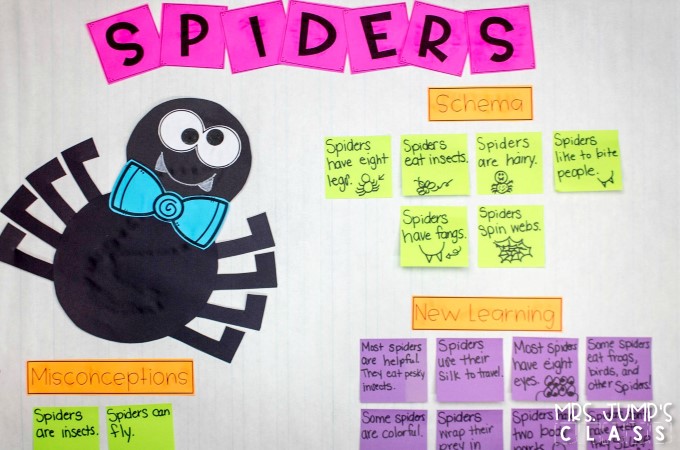 SPIDERS
Schema
Spiders
have eight
legs.
Spiders
eat insects.
Spiders
are hairy.
Spiders
like to bite
people.
Spiders
have fangs.
Spiders
spin webs.
New Learning
Most spiders
are helpful.
They eat pesky
insects.
Spiders
use their
silk to travel.
Most spiders
have eight
eyes.
Some spiders
eat frogs,
birds, and
other spiders!
Misconceptions
Spiders
are insects.
Spiders can
fly.
Some spiders
are colorful.
Spiders
wrap their
prey in
Spiders
two body
MRS. JUMP'S
CLASS